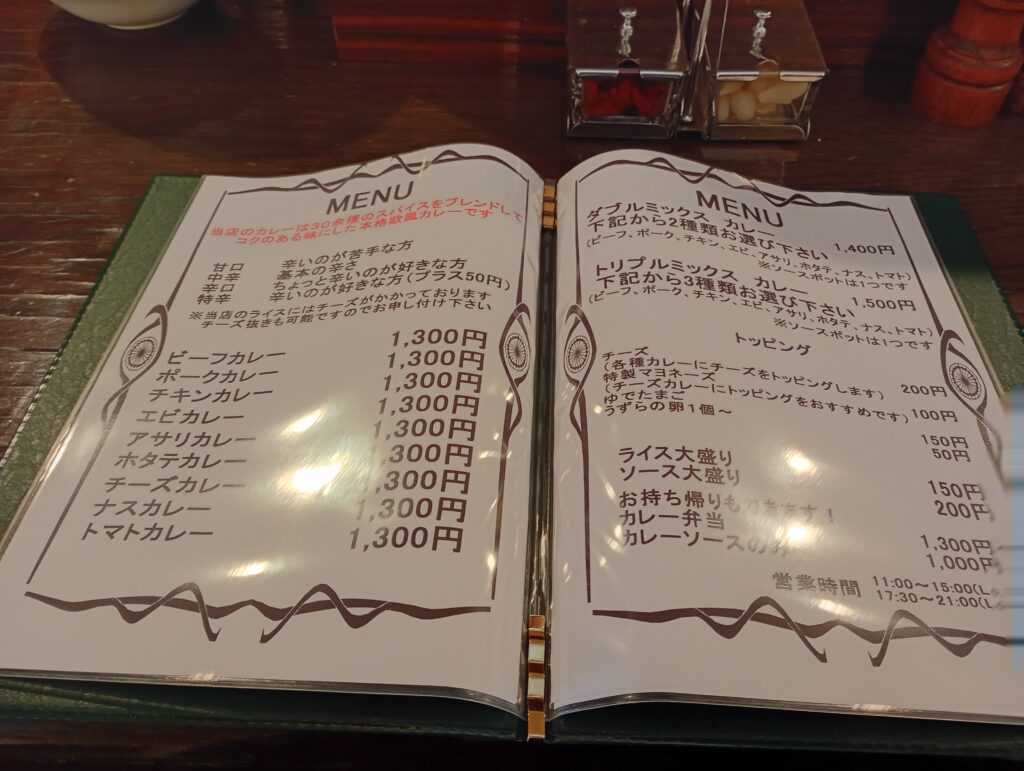 MENU
当店のカレーは30余種のスパイスをブレンドして
コクのある味にした本格欧風カレーです
甘口 辛いのが苦手な方
中辛 基本の辛さ
辛口 ちょっと辛いのが好きな方
特辛 辛いのが好きな方(プラス50円)
※当店のライスにはチーズがかかっております
チーズ抜きも可能ですのでお申し付け下さい
ビーフカレー 1,300円
ポークカレー 1,300円
チキンカレー 1,300円
エビカレー 1,300円
アサリカレー 1,300円
ホタテカレー 1,300円
チーズカレー 1,300円
ナスカレー 1,300円
トマトカレー 1,300円
MENU
ダブルミックス カレー 1,400円
下記から2種類お選び下さい
(ビーフ、ポーク、チキン、エビ、アサリ、ホタテ、ナス、トマト)
※ソースポットは1つです
トリプルミックス カレー 1,500円
下記から3種類お選び下さい
(ビーフ、ポーク、チキン、エビ、アサリ、ホタテ、ナス、トマト)
※ソースポットは1つです
トッピング
チーズ 200円
(各種カレーにチーズをトッピングします)
特製マヨネーズ 100円
(チーズカレーにトッピングをおすすめです)
ゆでたまご 150円
うずらの卵1個~ 50円
ライス大盛り 150円
ソース大盛り 200円
お持ち帰りもできます!
カレー弁当 1,300円
カレーソースのみ 1,000円
営業時間 11:00~15:00(L
17:30~21:00(L